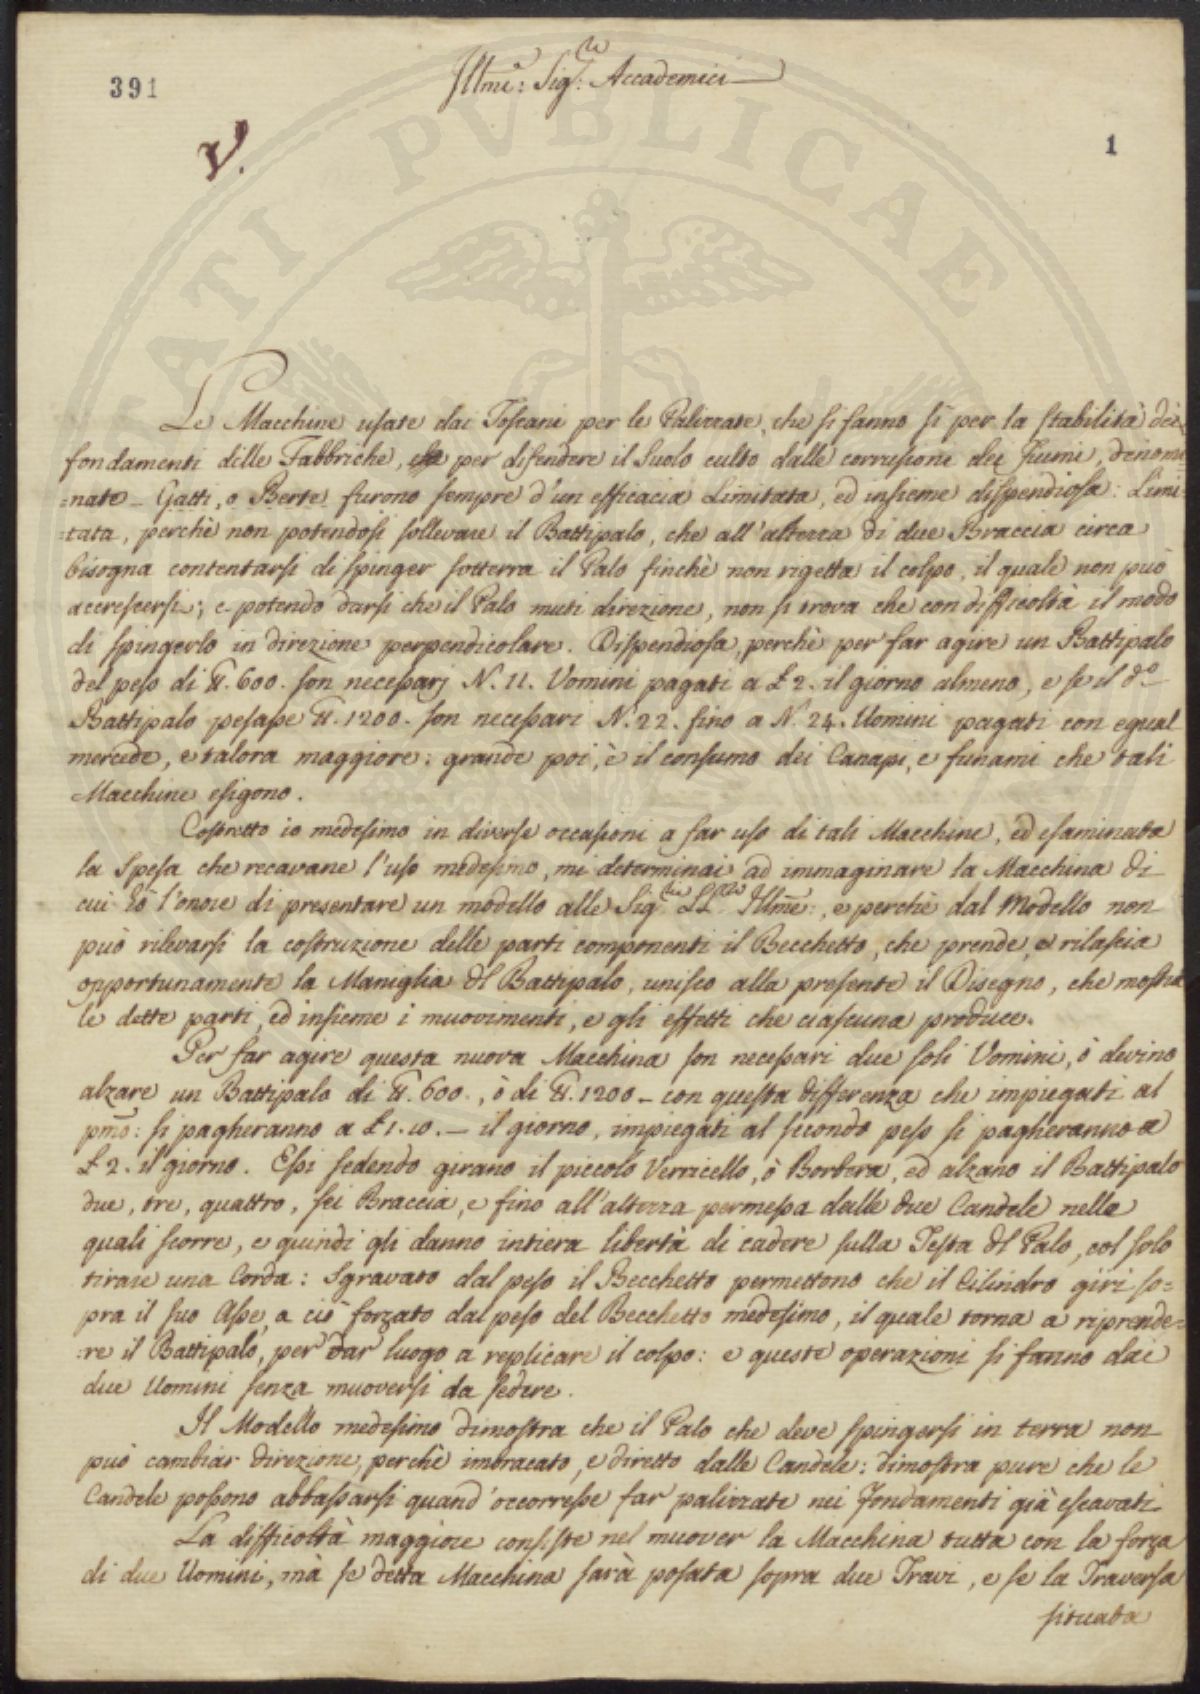 391
Illmi: Sig.ri: Accademici
V.
1
Le Macchine usate dai Toscani per le Palizzate, che si fanno sì per la stabilità dei
fondamenti delle Fabbriche, che per difendere il Suolo culto dalle corrusioni dei Fiumi, denomi
=nate - Gatti, o Berte furono sempre d'un efficacia Limitata, ed insieme dispendiosa: Limi
=tata, perchè non potendosi sollevare il Battipalo, che all'altezza di due Braccia circa
bisogna contentarsi di spinger sotterra il Palo finchè non rigetta il colpo, il quale non può
accrescersi; e potendo darsi che il Palo muti direzione, non si trova che con difficoltà il modo
di spingerlo in direzione perpendicolare. Dispendiosa, perchè per far agire un Battipalo
del peso di ℔. 600. son necessarj N. 11. Uomini pagati a £ 2. il giorno almeno, e se il d.o
Battipalo pesasse ℔. 1200. son necessari N. 22. fino a N. 24. Uomini pagati con egual
mercede, e talora maggiore: grande poi, è il consumo dei Canapi, e funami che tali
Macchine esigono.
Costretto io medesimo in diverse occasioni a far uso di tali Macchine, ed esaminata
la Spesa che recavane l'uso medesimo, mi determinai ad immaginare la Macchina di
cui hò l'onore di presentare un modello alle Sig.rie LL. Illme:, e perchè dal Modello non
può rilevarsi la costruzione delle parti componenti il Becchetto, che prende, e rilascia
opportunamente la Maniglia dl Battipalo, unisco alla presente il Disegno, che mostra
le dette parti, ed insieme i muovimenti, e gli effetti che ciascuna produce.
Per far agire questa nuova Macchina son necessari due soli Uomini, ò devino
alzare un Battipalo di ℔. 600., ò di ℔. 1200 - con questa differenza che impiegati al
pmo: si pagheranno a £ 1. 10. - il giorno, impiegati al secondo peso si pagheranno a
£ 2. il giorno. Essi sedendo girano il piccolo Verricello, ò Borbera, ed alzano il Battipalo
due, tre, quattro, sei Braccia, e fino all'altezza permessa dalle due Candele nelle
quali scorre, e quindi gli danno intiera libertà di cadere sulla Testa dl Palo, col solo
tirare una Corda: Sgravato dal peso il Becchetto permettono che il Cilindro giri so=
pra il suo Asse, a ciò forzato dal peso del Becchetto medesimo, il quale torna a riprende=
=re il Battipalo, per dar luogo a replicare il colpo: e queste operazioni si fanno dai
due Uomini senza muoversi da sedere.
Il Modello medesimo dimostra che il Palo che deve spingersi in terra non
può cambiar direzione, perchè imbracato, e diretto dalle Candele: dimostra pure che le
Candele possono abbassarsi quand'occorresse far palizzate nei fondamenti già escavati.
La difficoltà maggiore consiste nel muover la Macchina tutta con la forza
di due Uomini, mà se detta Macchina sarà posata sopra due Travi, e se la Traversa
situata